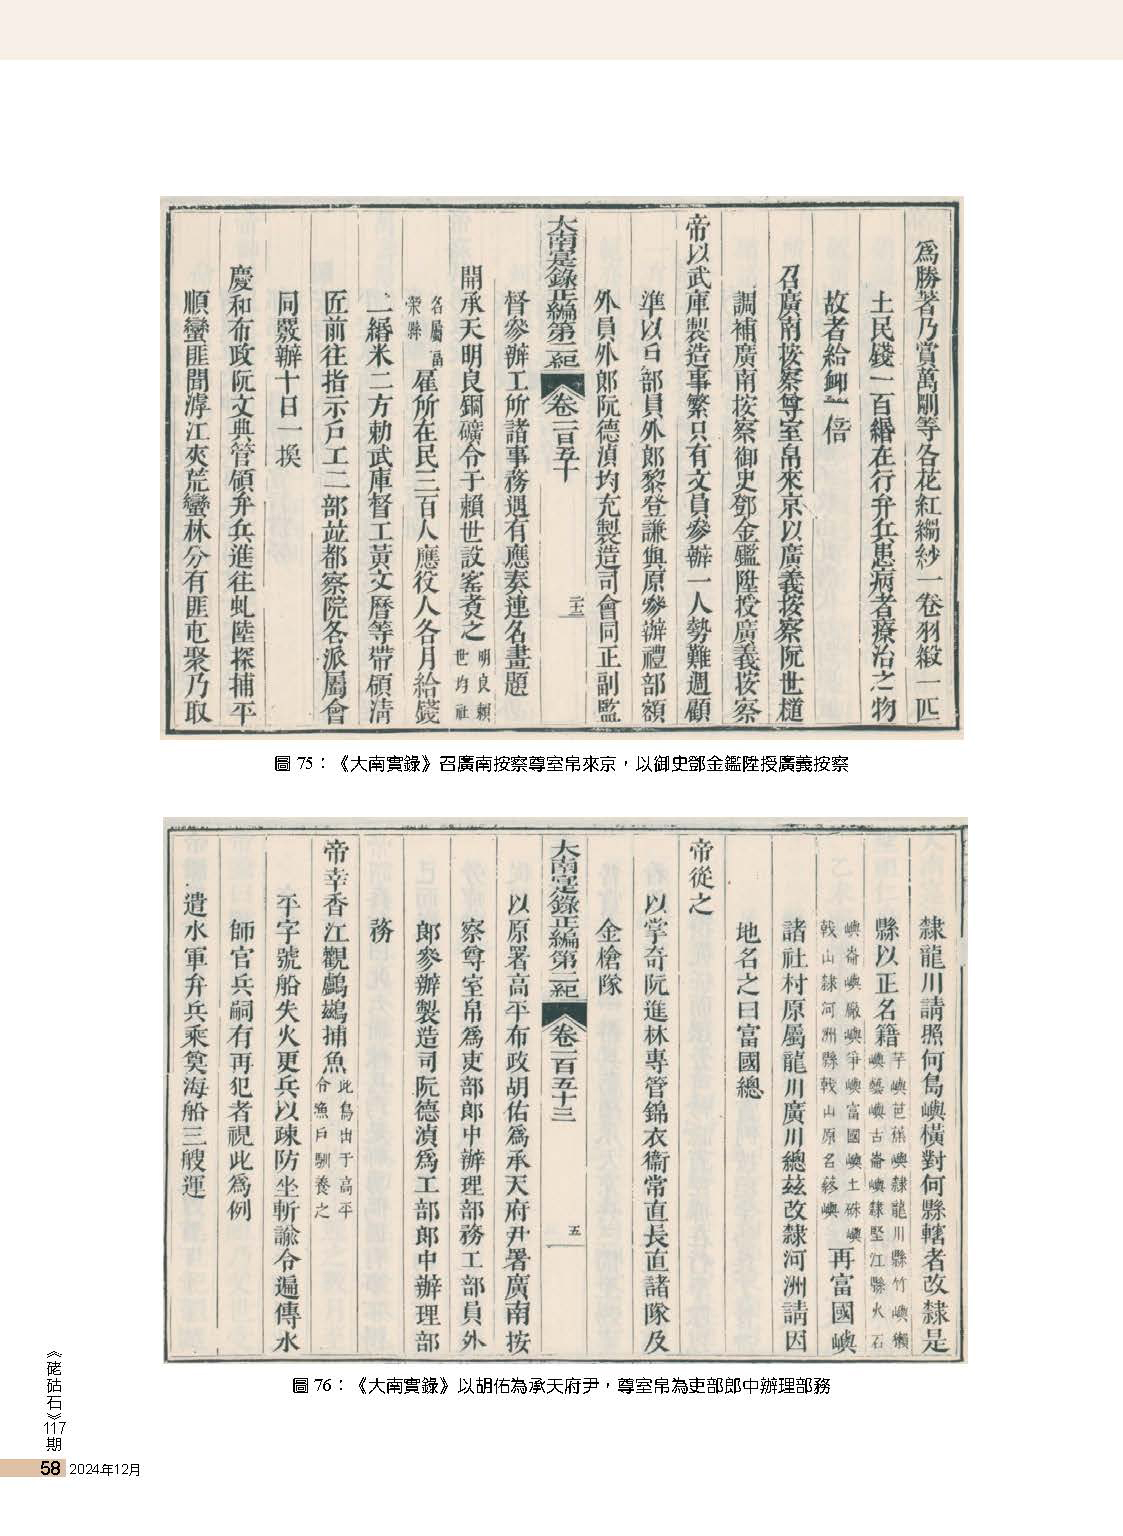 爲勝著乃賞萬剛等各花紅縐紗一卷羽緞一匹
土民錢一百緡在行弁兵患病者療治之物
故者給卹一倍
召廣南按察尊室帛來京以廣義按察阮世㯖
調補廣南按察御史鄧金鑑陞授廣義按察
帝以武庫製造事繁只有文員參辦一人勢難週顧
準以戶部員外郎黎登謙與原參辦禮部額
外員外郎阮德湞均充製造司會同正副監
大南寔錄正編第二紀 卷二百五十 二十二
督參辦工所諸事務遇有應奏連名畫題
開承天明良鋼礦令于賴世設窑煑之 明良賴世均社
名屬富榮縣 雇所在民三百人應役人各月給錢
二緡米二方勅武庫督工黃文曆等帶領清
匠前往指示戶工二部竝都察院各派屬會
同覈辦十日一換
慶和布政阮文典管領弁兵進往虬陸探捕平
順蠻匪聞滹江夾荒蠻林分有匪屯聚乃取
圖 75：《大南實錄》召廣南按察尊室帛來京，以御史鄧金鑑陞授廣義按察
隸龍川請照何島嶼橫對何縣轄者改隸是
縣以正名籍 芋嶼芭蕉嶼隸龍川縣竹嶼獺嶼藝嶼古崙嶼隸堅江縣火石
嶼崙嶼廠嶼爭嶼富國嶼土硃嶼戟山隸河洲縣戟山原名修嶼 再富國嶼
諸社村原屬龍川廣川總茲改隸河洲請因
地名之曰富國總
帝從之
以掌奇阮進林專管錦衣衞常直長直諸隊及
金槍隊
大南寔錄正編第二紀 卷一百五十三 五
以原署高平布政胡佑爲承天府尹署廣南按
察尊室帛爲吏部郎中辦理部務工部員外
郎參辦製造司阮德湞爲工部郎中辦理部
務
帝幸香江觀鸕鷀捕魚 此鳥出于高平令漁戶馴養之
平字號船失火更兵以疎防坐斬諭令遍傳水
師官兵嗣有再犯者視此爲例
遣水軍弁兵乘奠海船三艘運
圖 76：《大南實錄》以胡佑為承天府尹，尊室帛為吏部郎中辦理部務
《硓𥑮石》117期
58 2024年12月